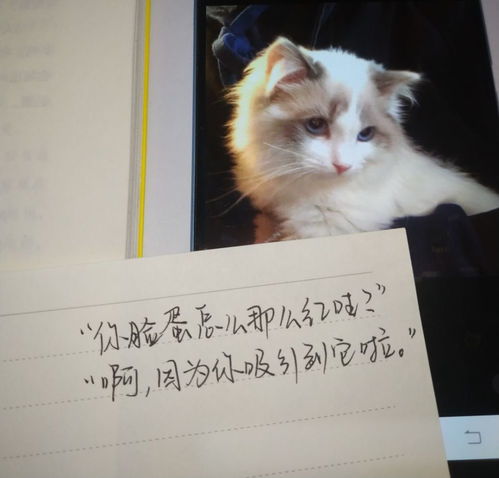 “你脸蛋怎么那么红哇？”
“啊，因为你吸引到它啦。”